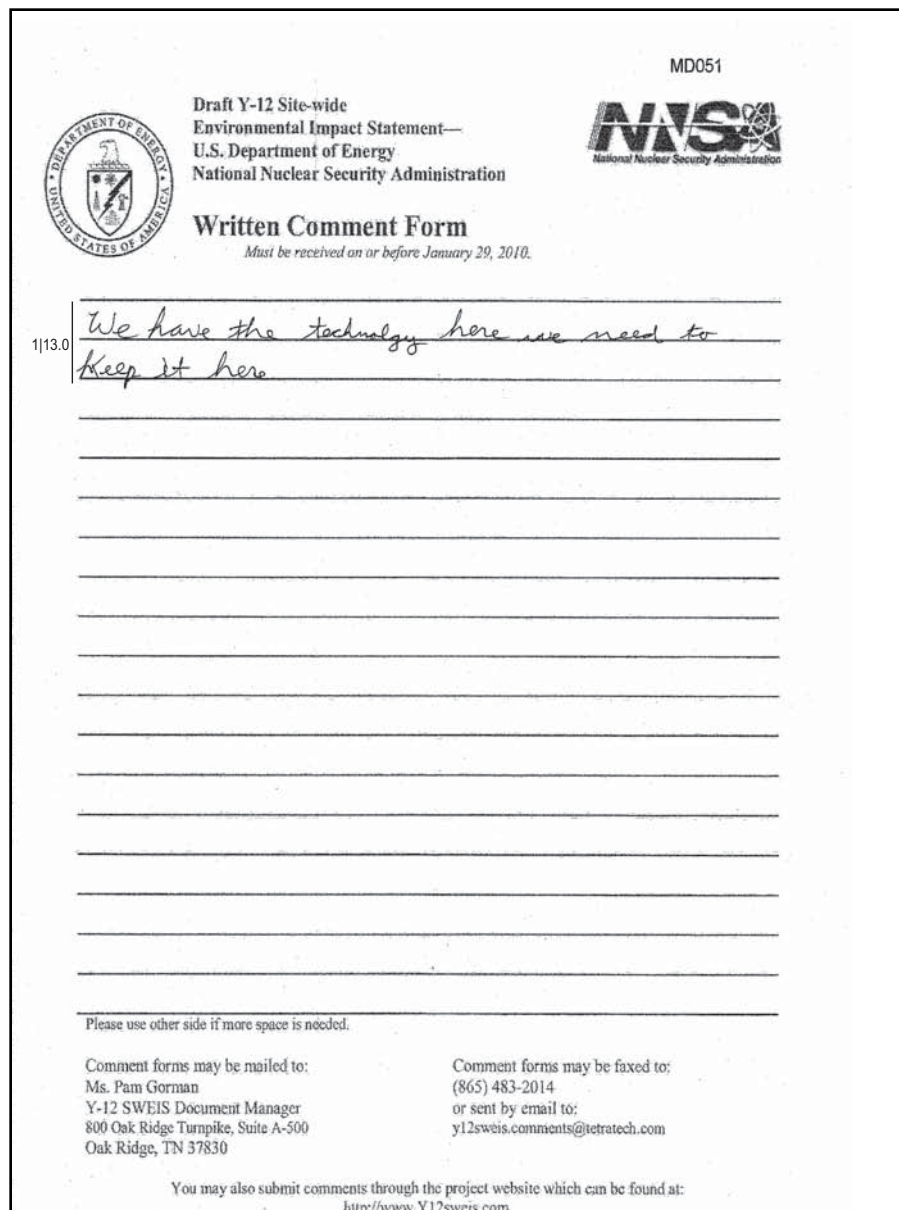 MD051
DEPARTMENT OF ENERGY
UNITED STATES OF AMERICA
Draft Y-12 Site-wide
Environmental Impact Statement—
U.S. Department of Energy
National Nuclear Security Administration
NNSA
National Nuclear Security Administration
Written Comment Form
Must be received on or before January 29, 2010.
1|13.0
We have the technolgy here we need to
Keep it here
Please use other side if more space is needed.
Comment forms may be mailed to:
Ms. Pam Gorman
Y-12 SWEIS Document Manager
800 Oak Ridge Turnpike, Suite A-500
Oak Ridge, TN 37830
Comment forms may be faxed to:
(865) 483-2014
or sent by email to:
y12sweis.comments@tetratech.com
You may also submit comments through the project website which can be found at:
http://www.Y12sweis.com